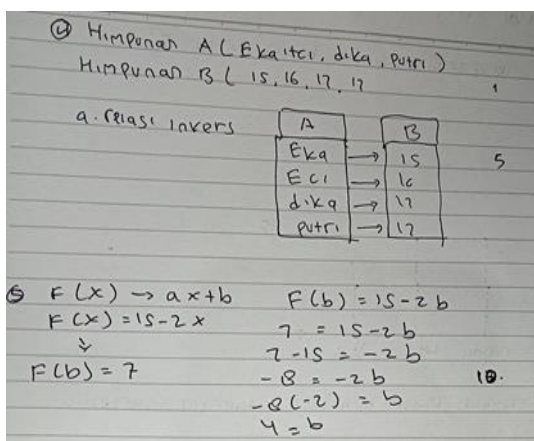 ④ Himpunan A ( Eka, Eci, dika, Putri )
Himpunan B ( 15, 16, 17, 17
1
a. relasi invers
A B
Eka → 15
5
Eci → 16
dika → 17
putri → 17
⑤ F(x) → ax+b
F(x) = 15-2x
F(b) = 7
F(b) = 15-2b
7 = 15-2b
7-15 = -2b
-8 = -2b
10.
-8(-2) = b
4 = b